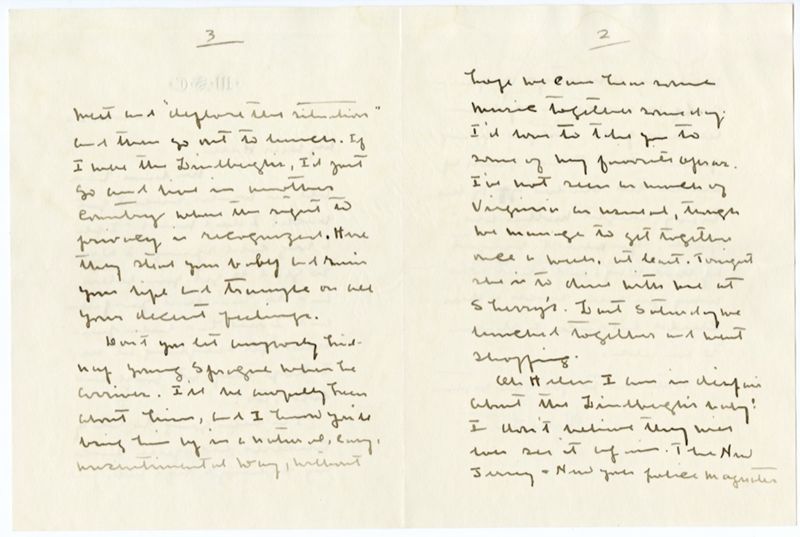 2
hope we can hear some
music together some day.
I'd love to take you to
some of my favorite operas.
I've not seen as much of
Virginia as usual, though
we manage to get together
once a week, at least. Tonight
she is to dine with me at
Sherry's. Last Saturday we
lunched together and went
shopping.
Oh Helen I am in despair
about the Lindbergh's baby!
I don't believe they will
ever see it again. The New
Jersey + New York police magnates
3
meet and "deplore the situation"
and then go out to lunch. If
I were the Lindberghs, I'd just
go and live in another
country where the right to
privacy is recognized. Here
they steal your baby and ruin
your life and trample on all
your decent feelings.
Don't you let anybody kid-
nap young Sprague when he
arrives. I'll be awfully keen
about him, and I know you'll
bring him up in a natural, easy,
unsentimental way, without